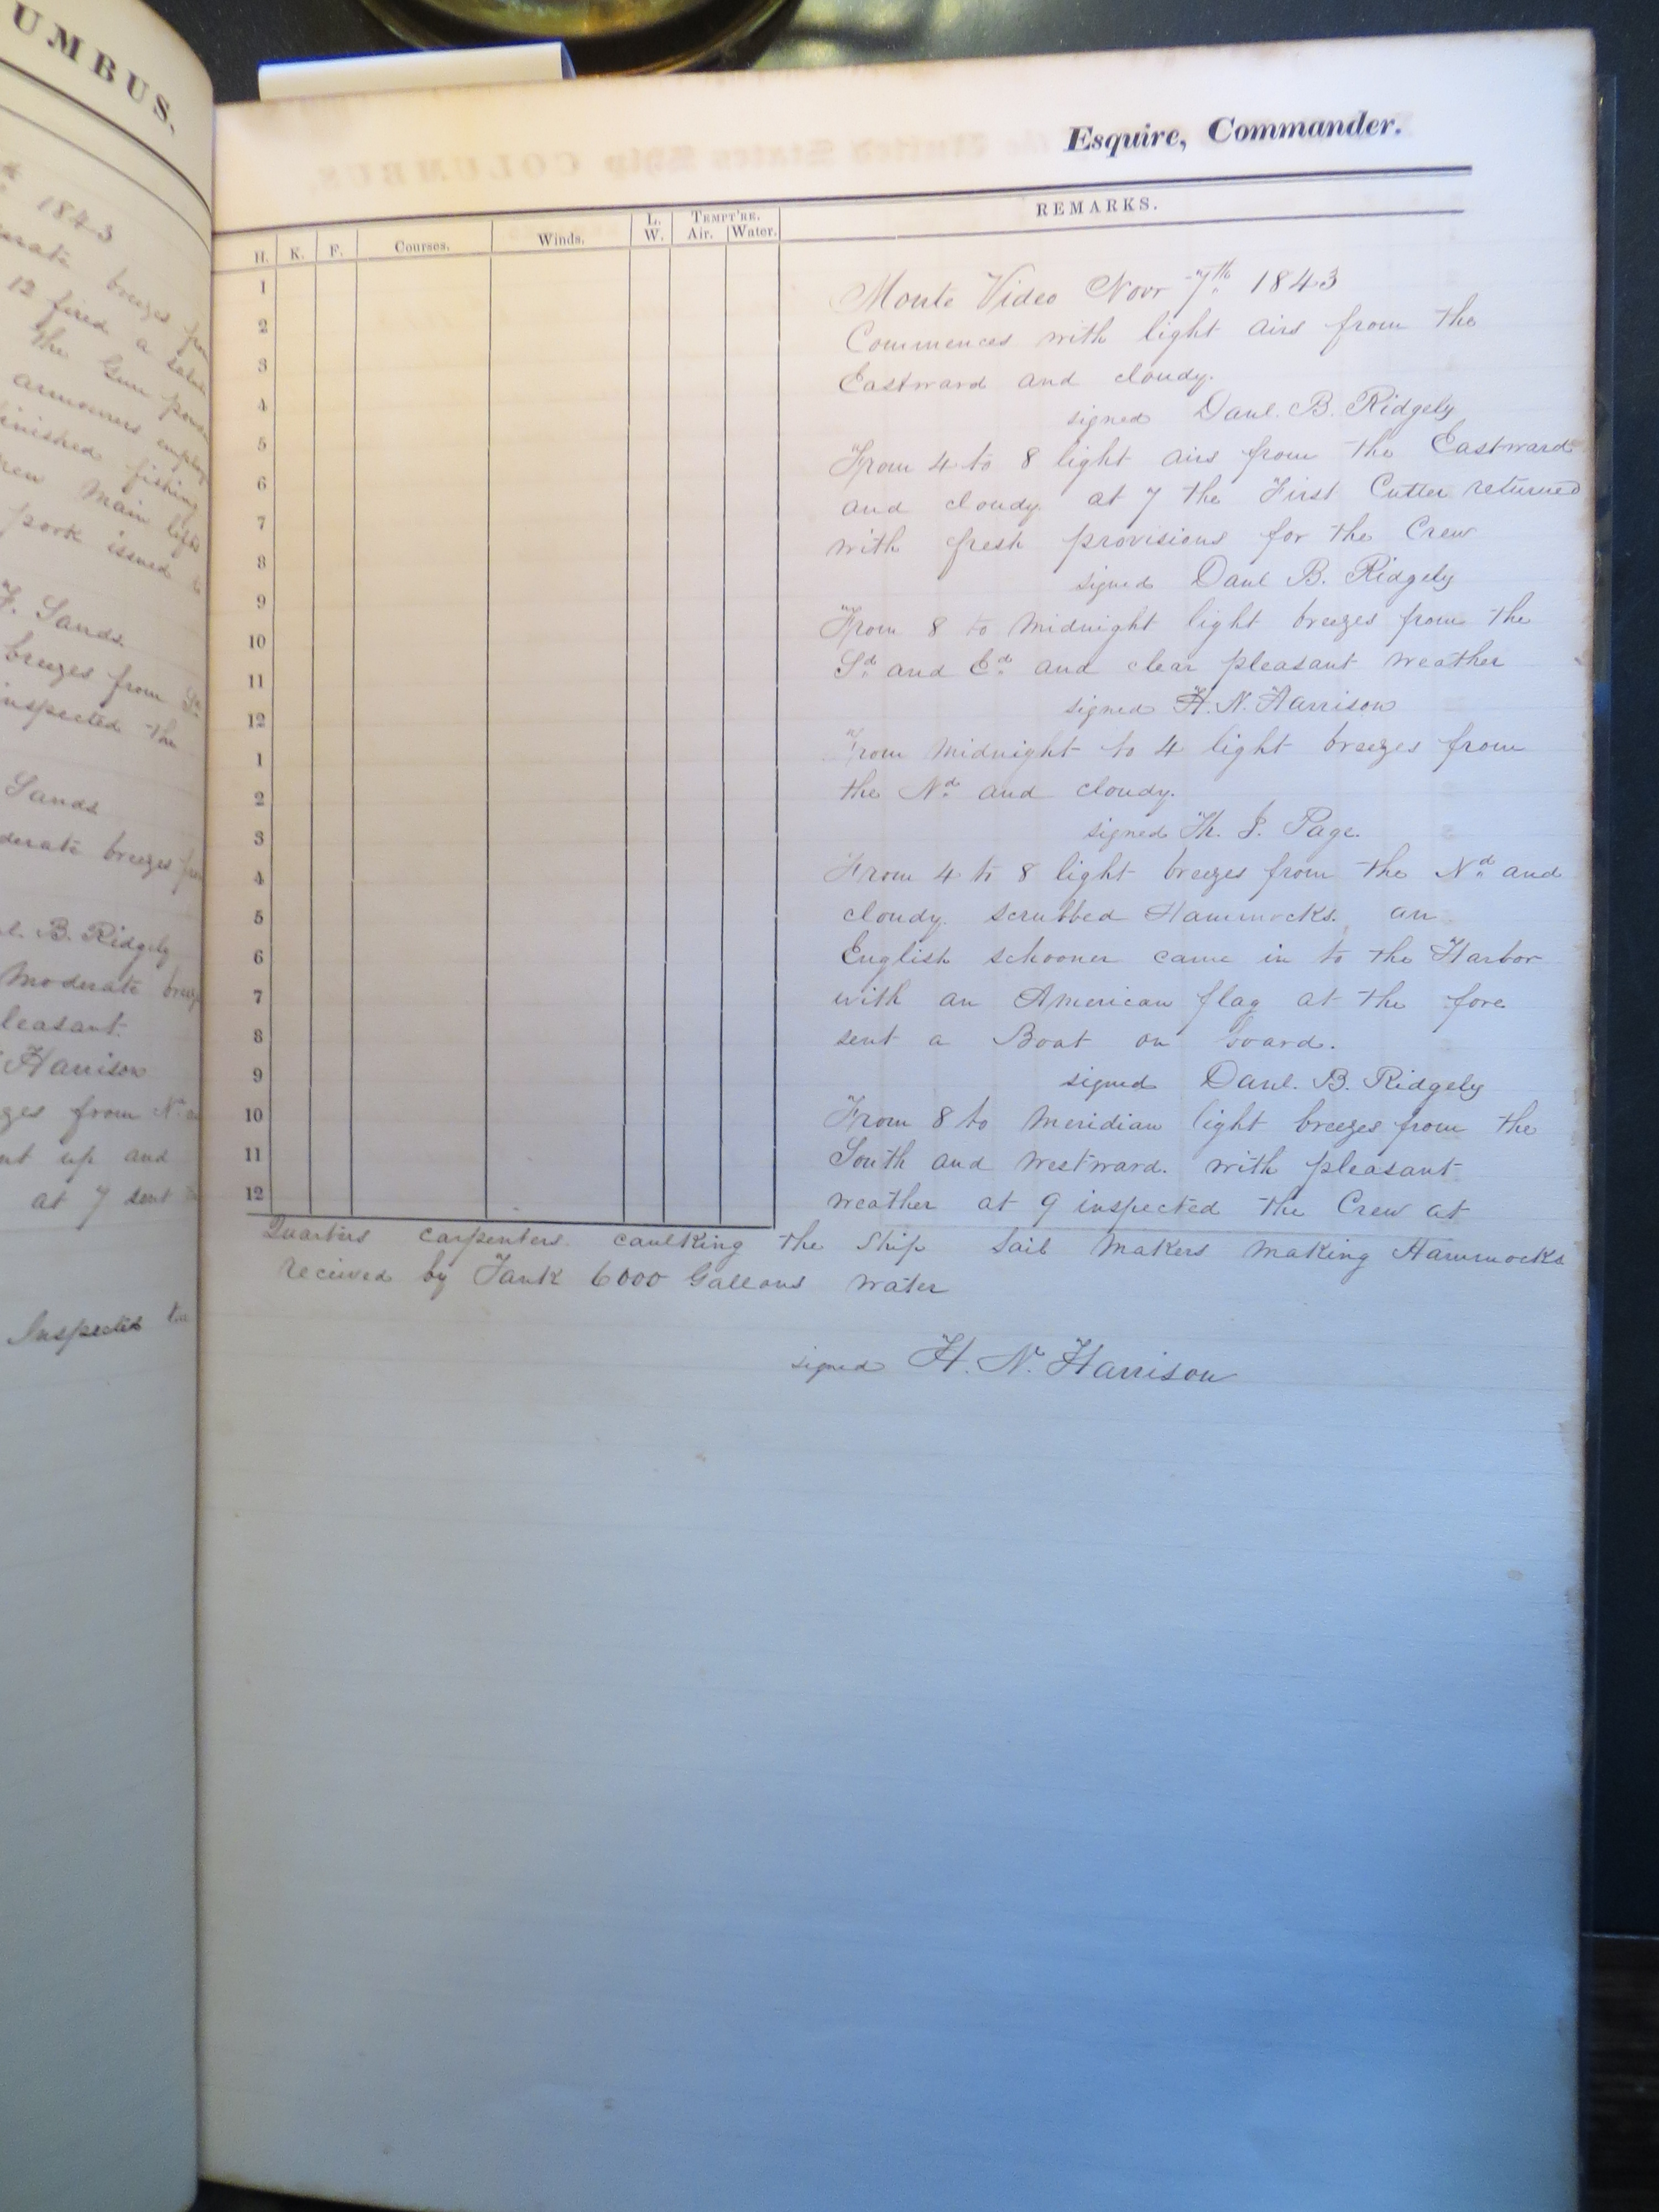 UMBUS.
1843
breezes from
12 fired a salute
the Gun
armourers
finished fishing
Main lifts
pork issued to
Sands.
breezes from Sd.
inspected the
Sands
breezes
B. Ridgely
Moderate
Harrison
from
up and
at 7 sent
Inspected the
Esquire, Commander.
H. K. F. Courses. Winds. L. W. TEMPT'RE. Air. Water. REMARKS.
1
2
3
4
5
6
7
8
9
10
11
12
1
2
3
4
5
6
7
8
9
10
11
12
Monte Video Novr 7th. 1843
Commences with light airs from the
Eastward and cloudy.
signed Danl. B. Ridgely
From 4 to 8 light airs from the Eastward
and cloudy. at 7 the First Cutter returned
with fresh provisions for the Crew
signed Danl B. Ridgely
From 8 to Midnight light breezes from the
Sd. and Ed. and clear pleasant weather
signed H. N. Harrison
From Midnight to 4 light breezes from
the Nd. and cloudy.
signed Th. J. Page.
From 4 to 8 light breezes from the Nd. and
cloudy. scrubbed Hammocks. an
English schooner came in to the Harbor
with an American flag at the fore
sent a Boat on board.
signed Danl. B. Ridgely
From 8 to Meridian light breezes from the
South and westward. with pleasant
weather at 9 inspected the Crew at
Quarters carpenters caulking the Ship Sail Makers Making Hammocks
received by Tank 6000 Gallons water
signed H. N. Harrison